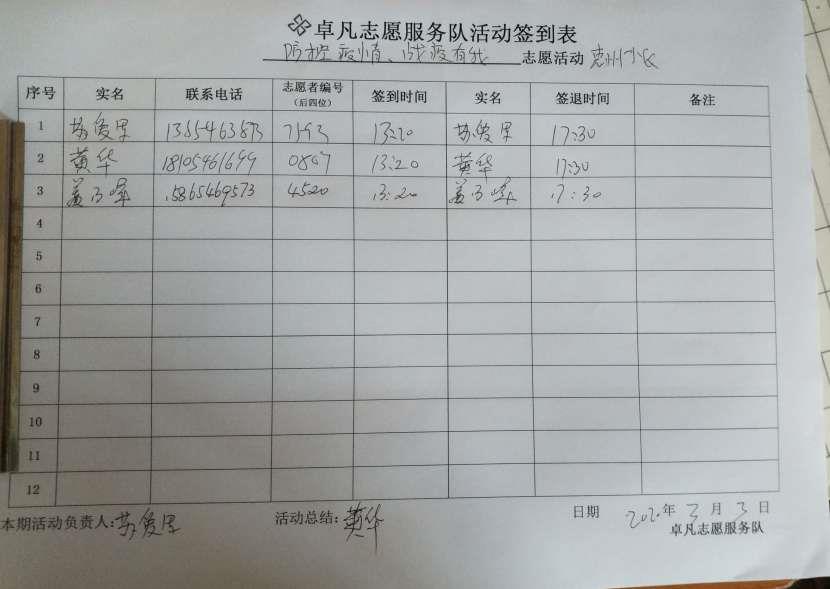 卓凡志愿服务队活动签到表
防控疫情、战疫有我 志愿活动 惠州小区
序号 实名 联系电话 志愿者编号（后四位） 签到时间 实名 签退时间 备注
1 苏爱军 7593 13:20 苏爱军 17:30
2 黄华 18105461699 0867 13:20 黄华 17:30
3 15865469573 4520 13:20 17:30
4
5
6
7
8
9
10
11
12
本期活动负责人:苏爱军 活动总结:黄华 日期 2020年3月3日
卓凡志愿服务队